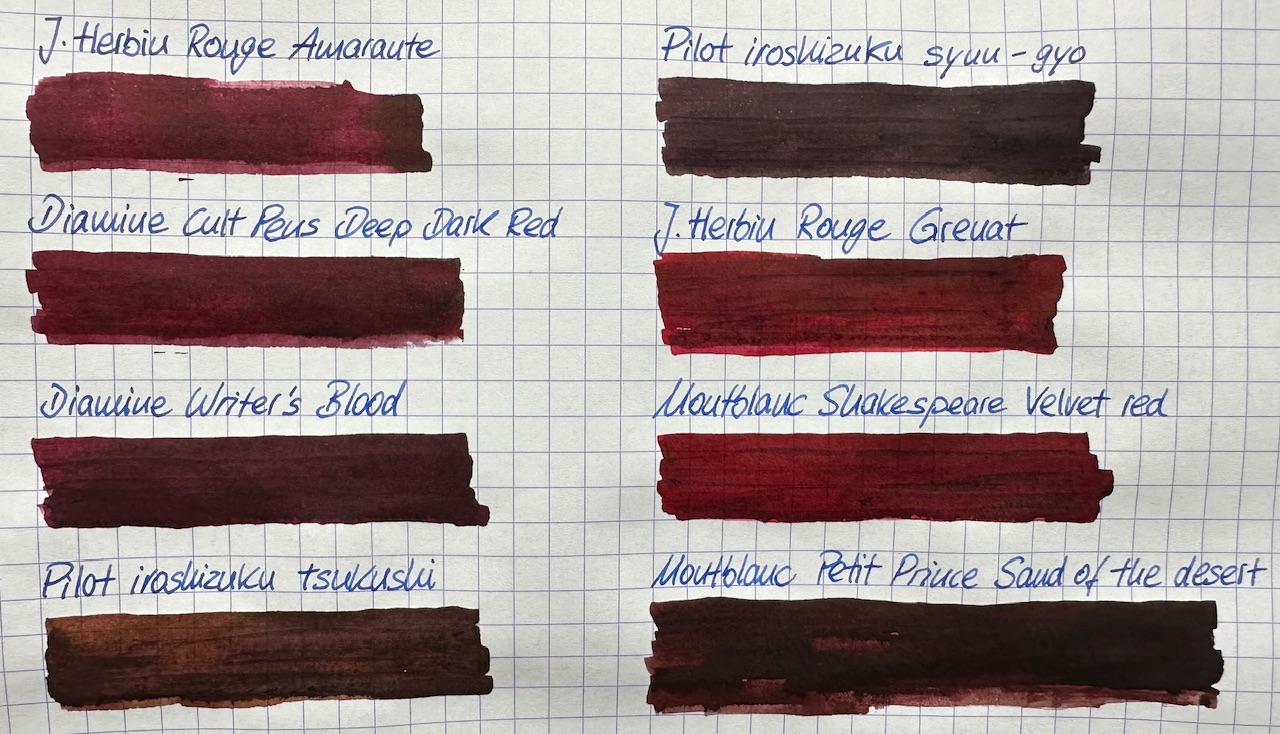 J. Herbin Rouge Amarante
Pilot iroshizuku syuu-gyo
Diamine Cult Pens Deep Dark Red
J. Herbin Rouge Grenat
Diamine Writer's Blood
Montblanc Shakespeare Velvet red
Pilot iroshizuku tsukushi
Montblanc Petit Prince Sand of the desert